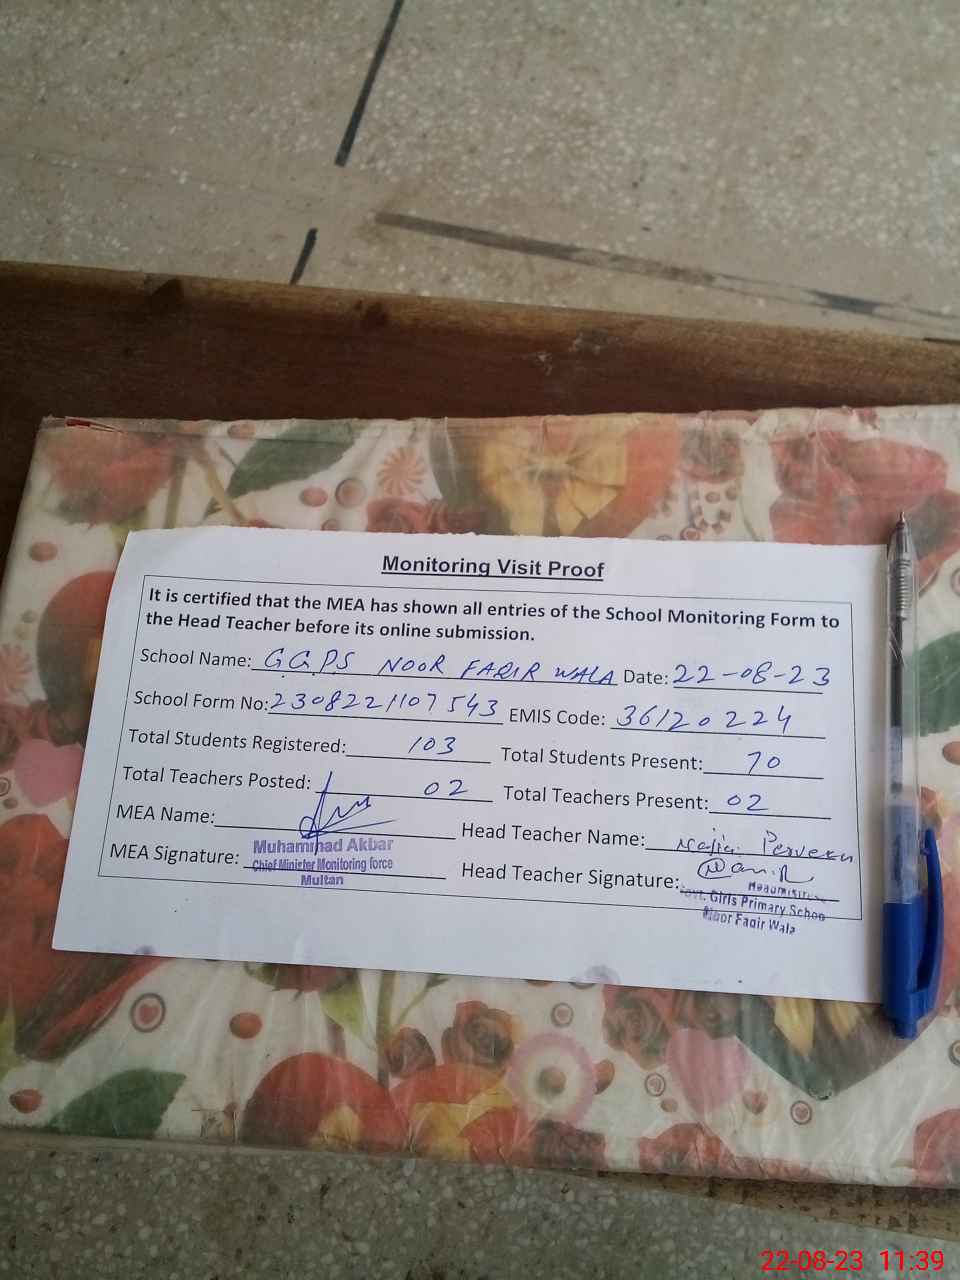 Monitoring Visit Proof
It is certified that the MEA has shown all entries of the School Monitoring Form to
the Head Teacher before its online submission.
School Name: G.G.P.S NOOR FAQIR WALA Date: 22-08-23
School Form No: 2308221107543 EMIS Code: 36120224
Total Students Registered: 103 Total Students Present: 70
Total Teachers Posted: 02 Total Teachers Present: 02
MEA Name: Head Teacher Name: Nazia Perveen
MEA Signature: Head Teacher Signature:
Muhammad Akbar
Chief Minister Monitoring force
Multan
Govt. Girls Primary School
Noor Faqir Wala
22-08-23 11:39